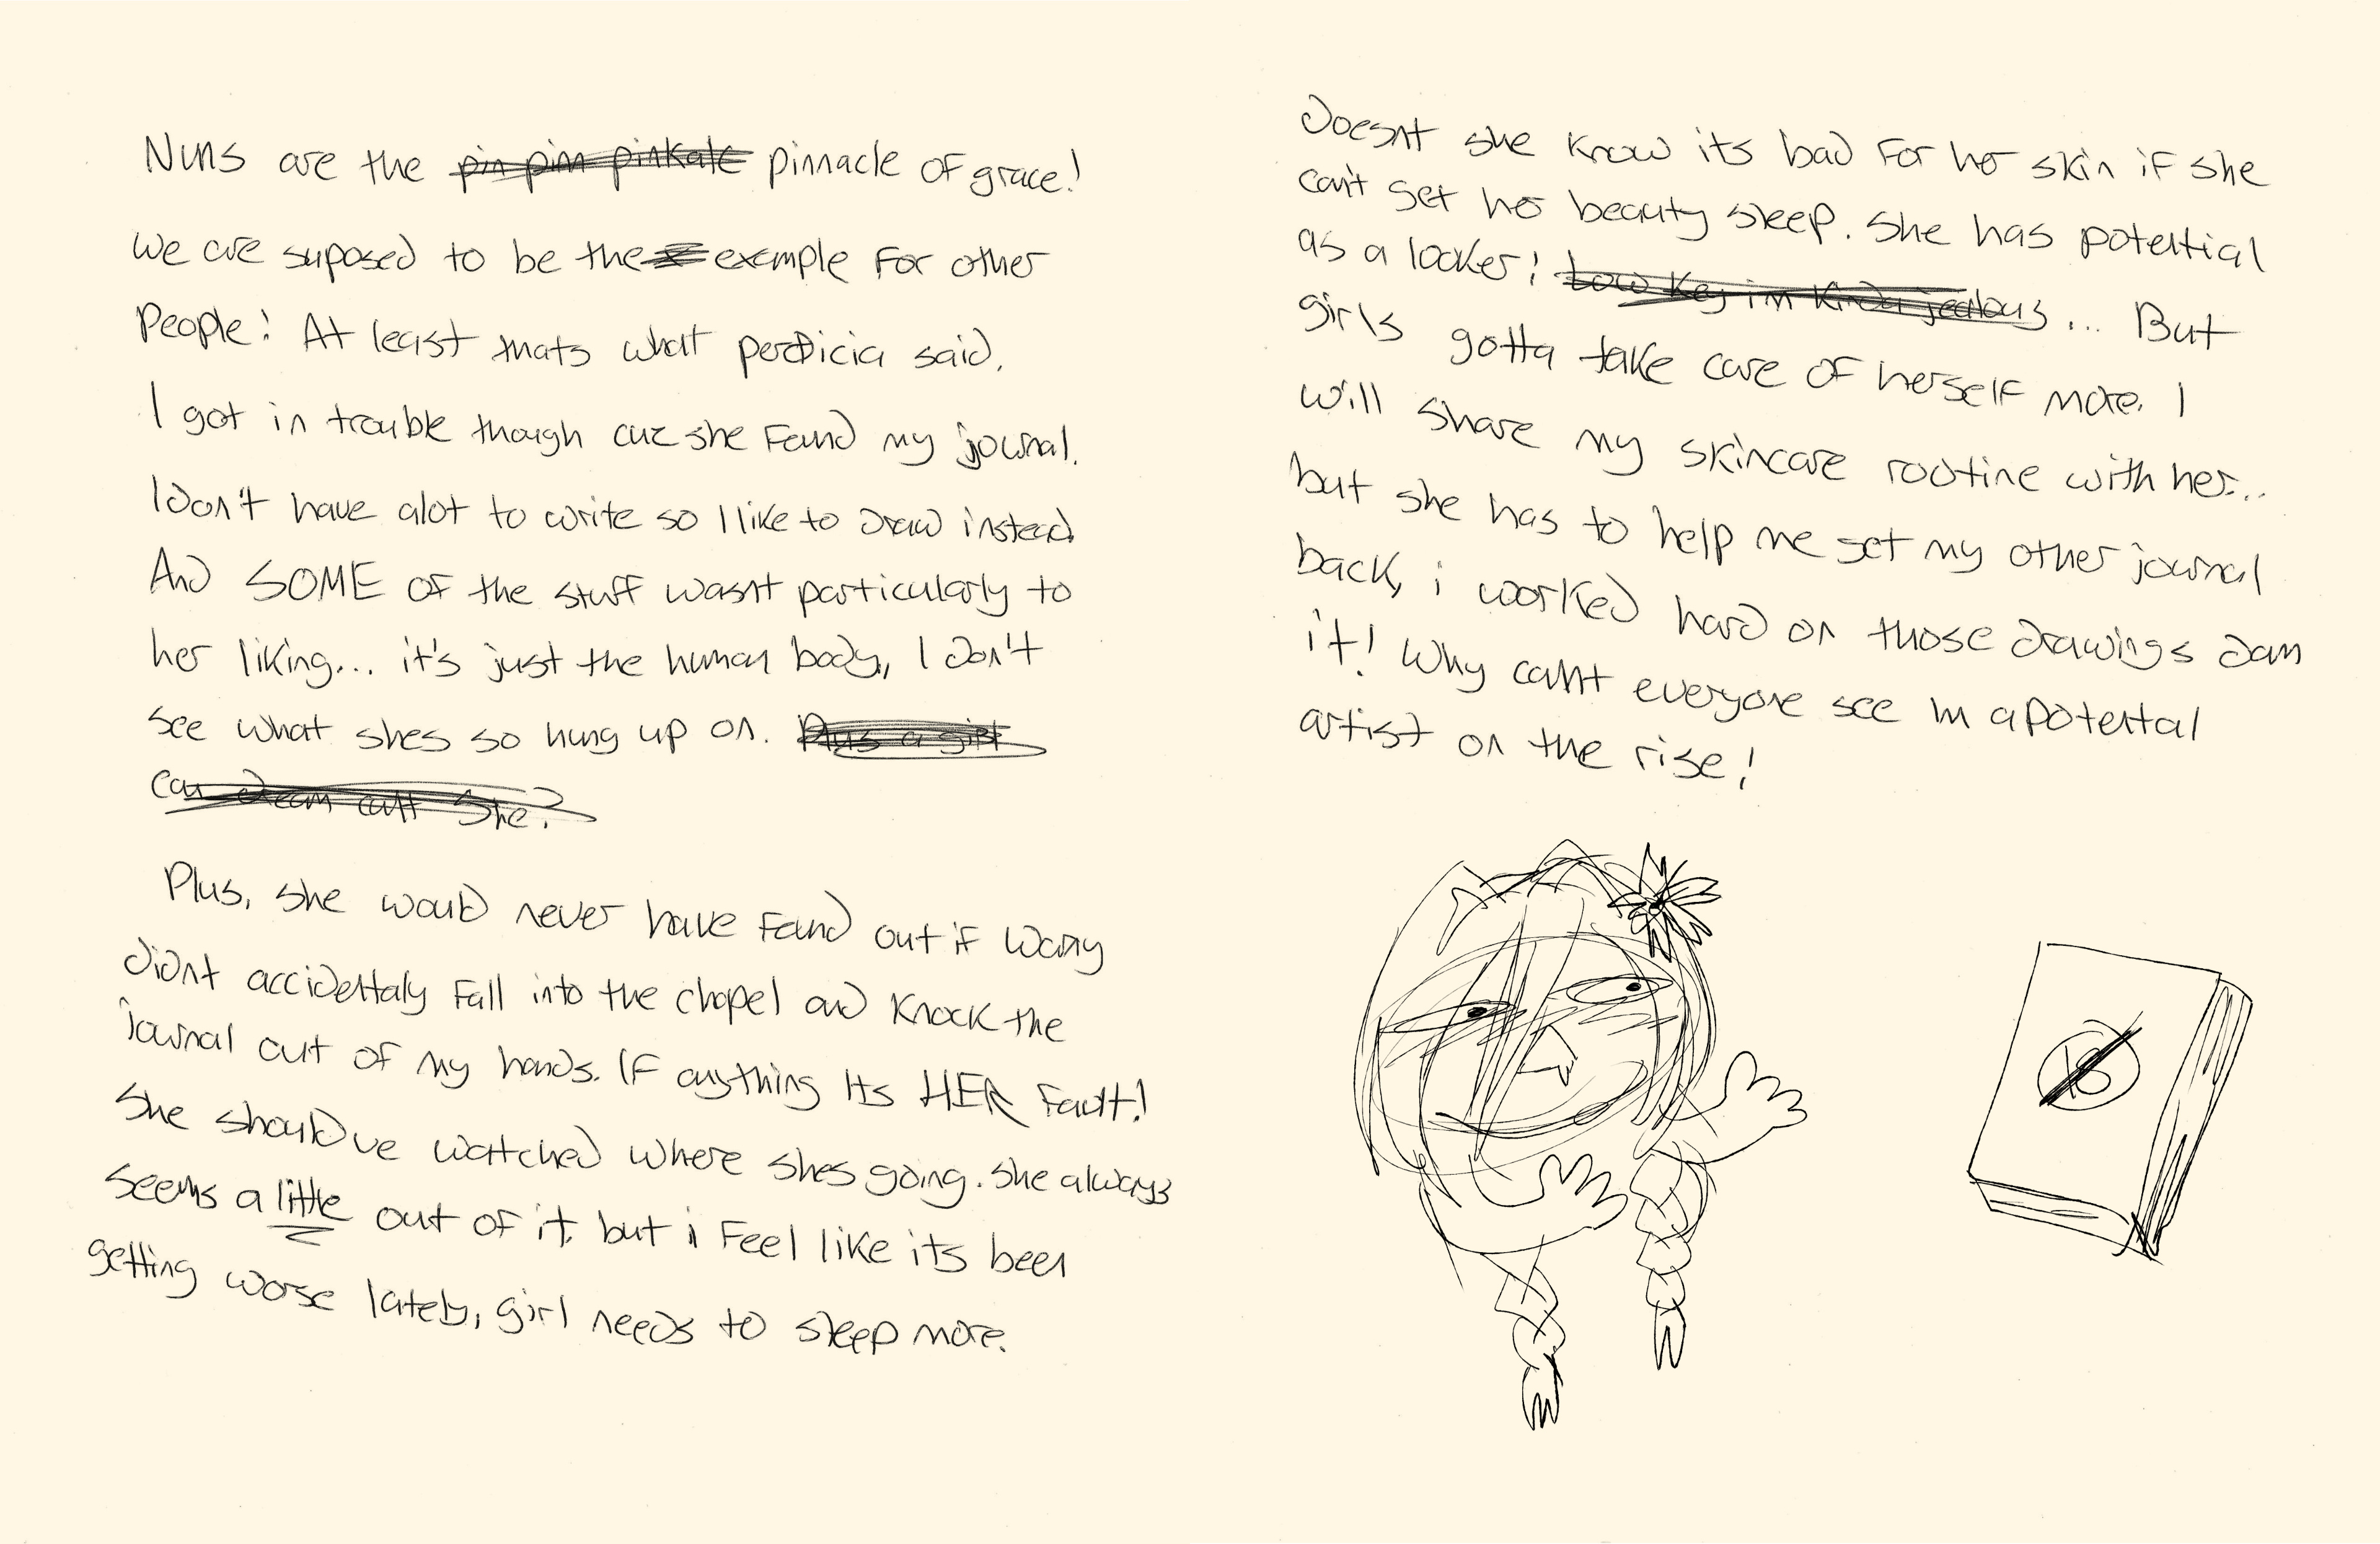 Nuns are the pin pim pinkale pinnacle of grace!
We are suposed to be the exemple For other
People! At least thats what perdicia said.
I got in trouble though cuz she Found my journal.
I don't have alot to write so I like to draw instead.
And SOME OF the stuff wasnt particularly to
her liking... it's just the human body, I don't
see what shes so hung up on. Plus a girl
can dream cant she?
Plus, she would never have Found out if Wany
didnt accidentaly Fall into the chapel and Knock the
journal out of my hands. IF anything Its HER Fault!
She should've watched where shes going. she always
seems a little out of it. but i Feel like its been
getting worse lately, girl needs to sleep more.
Doesnt she know its bad For her skin if she
can't get her beauty sleep. She has potential
as a looker! Low Key im Kinda jealous ... But
girls gotta take care of herself more. I
will share my skincare rootine with her...
but she has to help me get my other journal
back, i worked hard on those drawings dam
it! Why cant everyone see im a potental
artist on the rise!
18